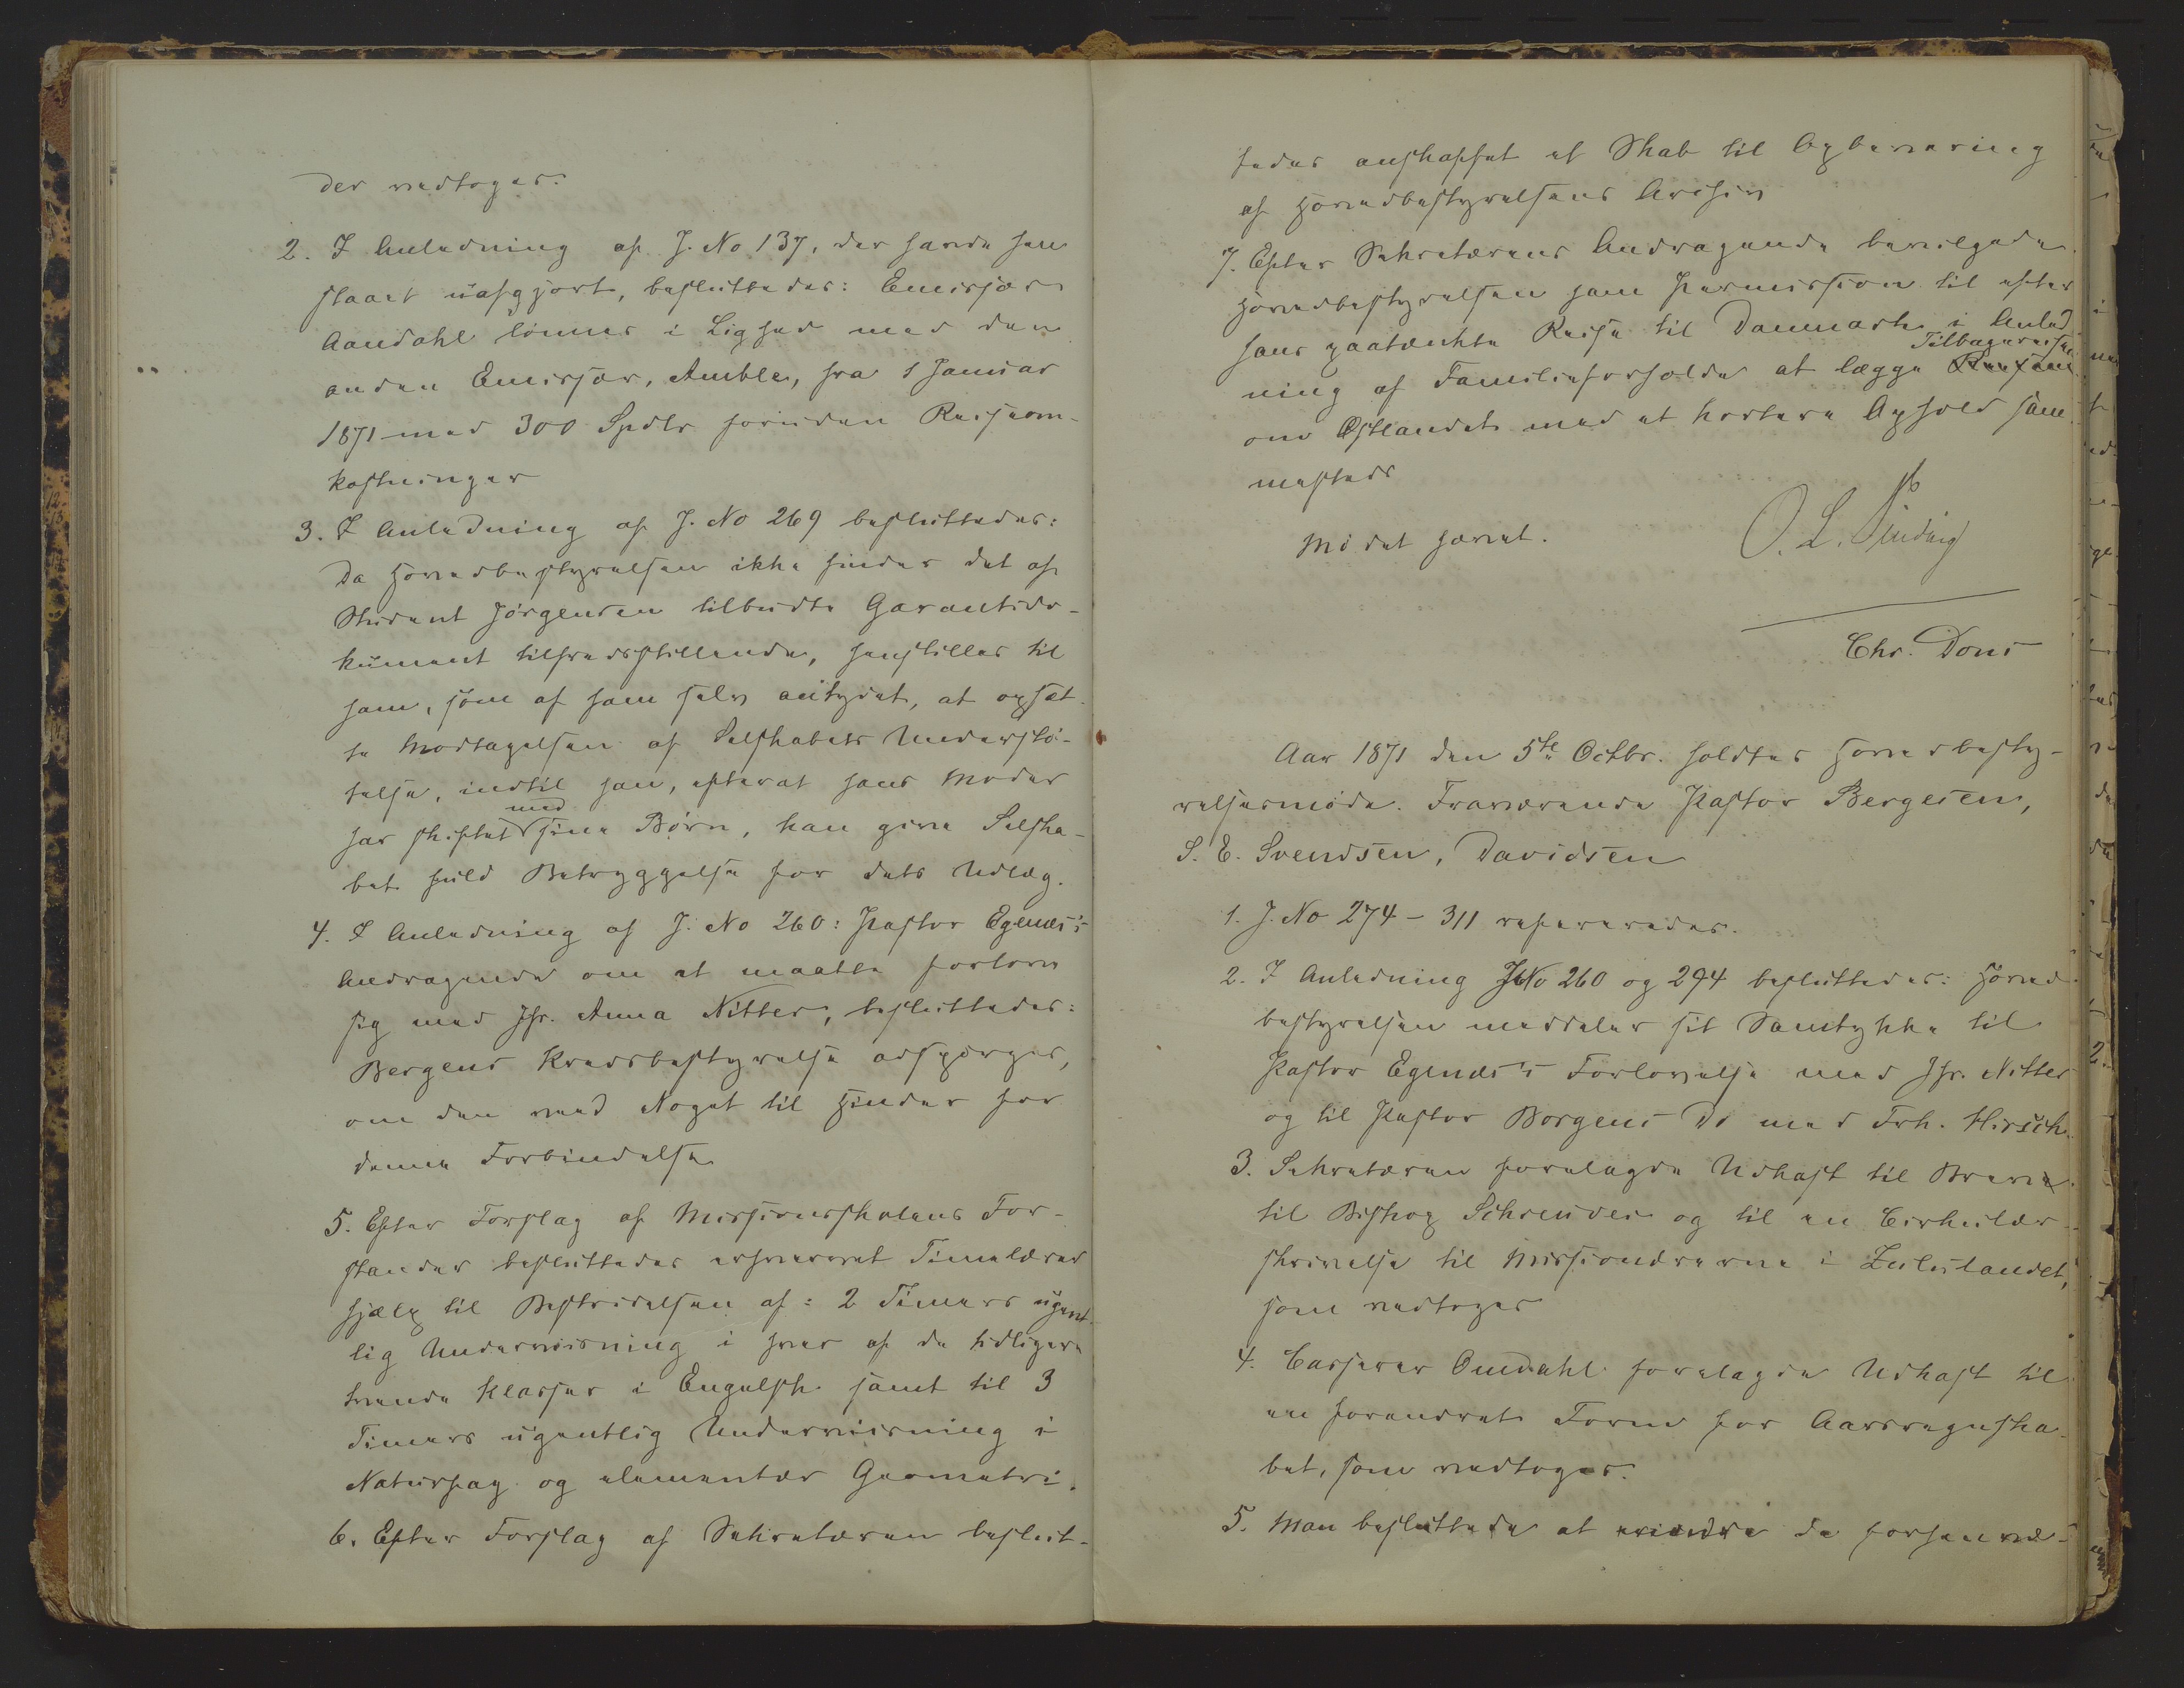 der vedtoges.
2. I Anledning af J. No 137, der havde hen
staaet uafgjort, besluttedes: Emissær
Aandahl lønnes i Lighed med den
anden Emissær, Amble, fra 1 Januar
1871 med 300 Spdlr foruden Reiseom-
kostninger
3. I Anledning af J. No 269 besluttedes:
Da Hovedbestyrelsen ikke finder det af
Student Jørgensen tilbudte Garantido-
kument tilfredsstillende, henstilles til
ham, som af ham selv antydet, at opsæt-
te Modtagelsen af Selskabets Understø-
telse, indtil han, efterat hans Moder
har skiftet med sine Børn, kan give Selska-
bet fuld Betryggelse for dets Udlæg.
4. I Anledning af J. No 260: Pastor Egenæs's
Andragende om at maatte forlove
sig med Jfr. Anna Nitter, besluttedes:
Bergens Kredsbestyrelse adspørges,
om den veed Noget til Hinder for
denne Forbindelse
5. Efter Forslag af Missionsskolens For-
stander besluttedes erhvervet Timelærer
hjælp til Bestridelsen af: 2 Timers ugent-
lig Underviisning i hver af de tidligere
tvende Klasser i Engelsk samt til 3
Timers ugentlig Underviisning i
Naturfag og elementær Geometri.
6. Efter Forslag af Sekretæren beslut-
tedes anskaffet et Skab til Opbevaring
af Hovedbestyrelsens Archiv
7. Efter Sekretærens Andragende bevilgede
Hovedbestyrelsen ham Permission til efter
hans paatænkte Reise til Danmark i Anled
ning af Familieforholde at lægge Tilbagereisen
om Østlandet med et kortere Ophold sam
mesteds
Mødet hævet.
O. L. Sinding
Chr. Dons
Aar 1871 den 5te Octbr. holdtes Hovedbesty-
relsesmøde. Fraværende Pastor Bergesen,
S. E. Svendsen, Davidsen
1. J. No 274 - 311 refereredes.
2. I Anledning J No 260 og 294 besluttedes: Hoved
bestyrelsen meddeler sit Samtykke til
Pastor Egenæs's Forlovelse med Jfr. Nitter
og til Pastor Borgens Do med Frk. Hirsch.
3. Sekretæren forelagde Udkast til Brev
til Biskop Schreuder og til en Cirkulær-
skrivelse til Missionærerne i Zululandet,
som vedtoges
4. Casserer Omdahl forelagde Udkast til
en forandret Form for Aarsregnska-
bet, som vedtoges.
5. Man besluttede at erindre de forhenvæ-